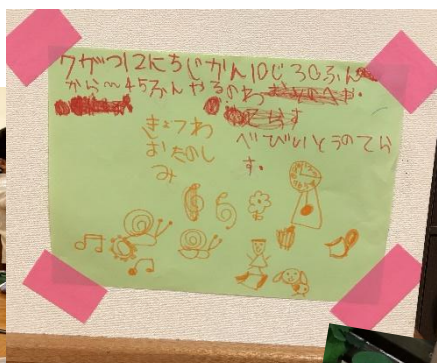 7がつ12にちじかん10じ30ふん
から〜45ふんやるのわ
きょうわ
おたのし
み
べびいとうのてら
す.